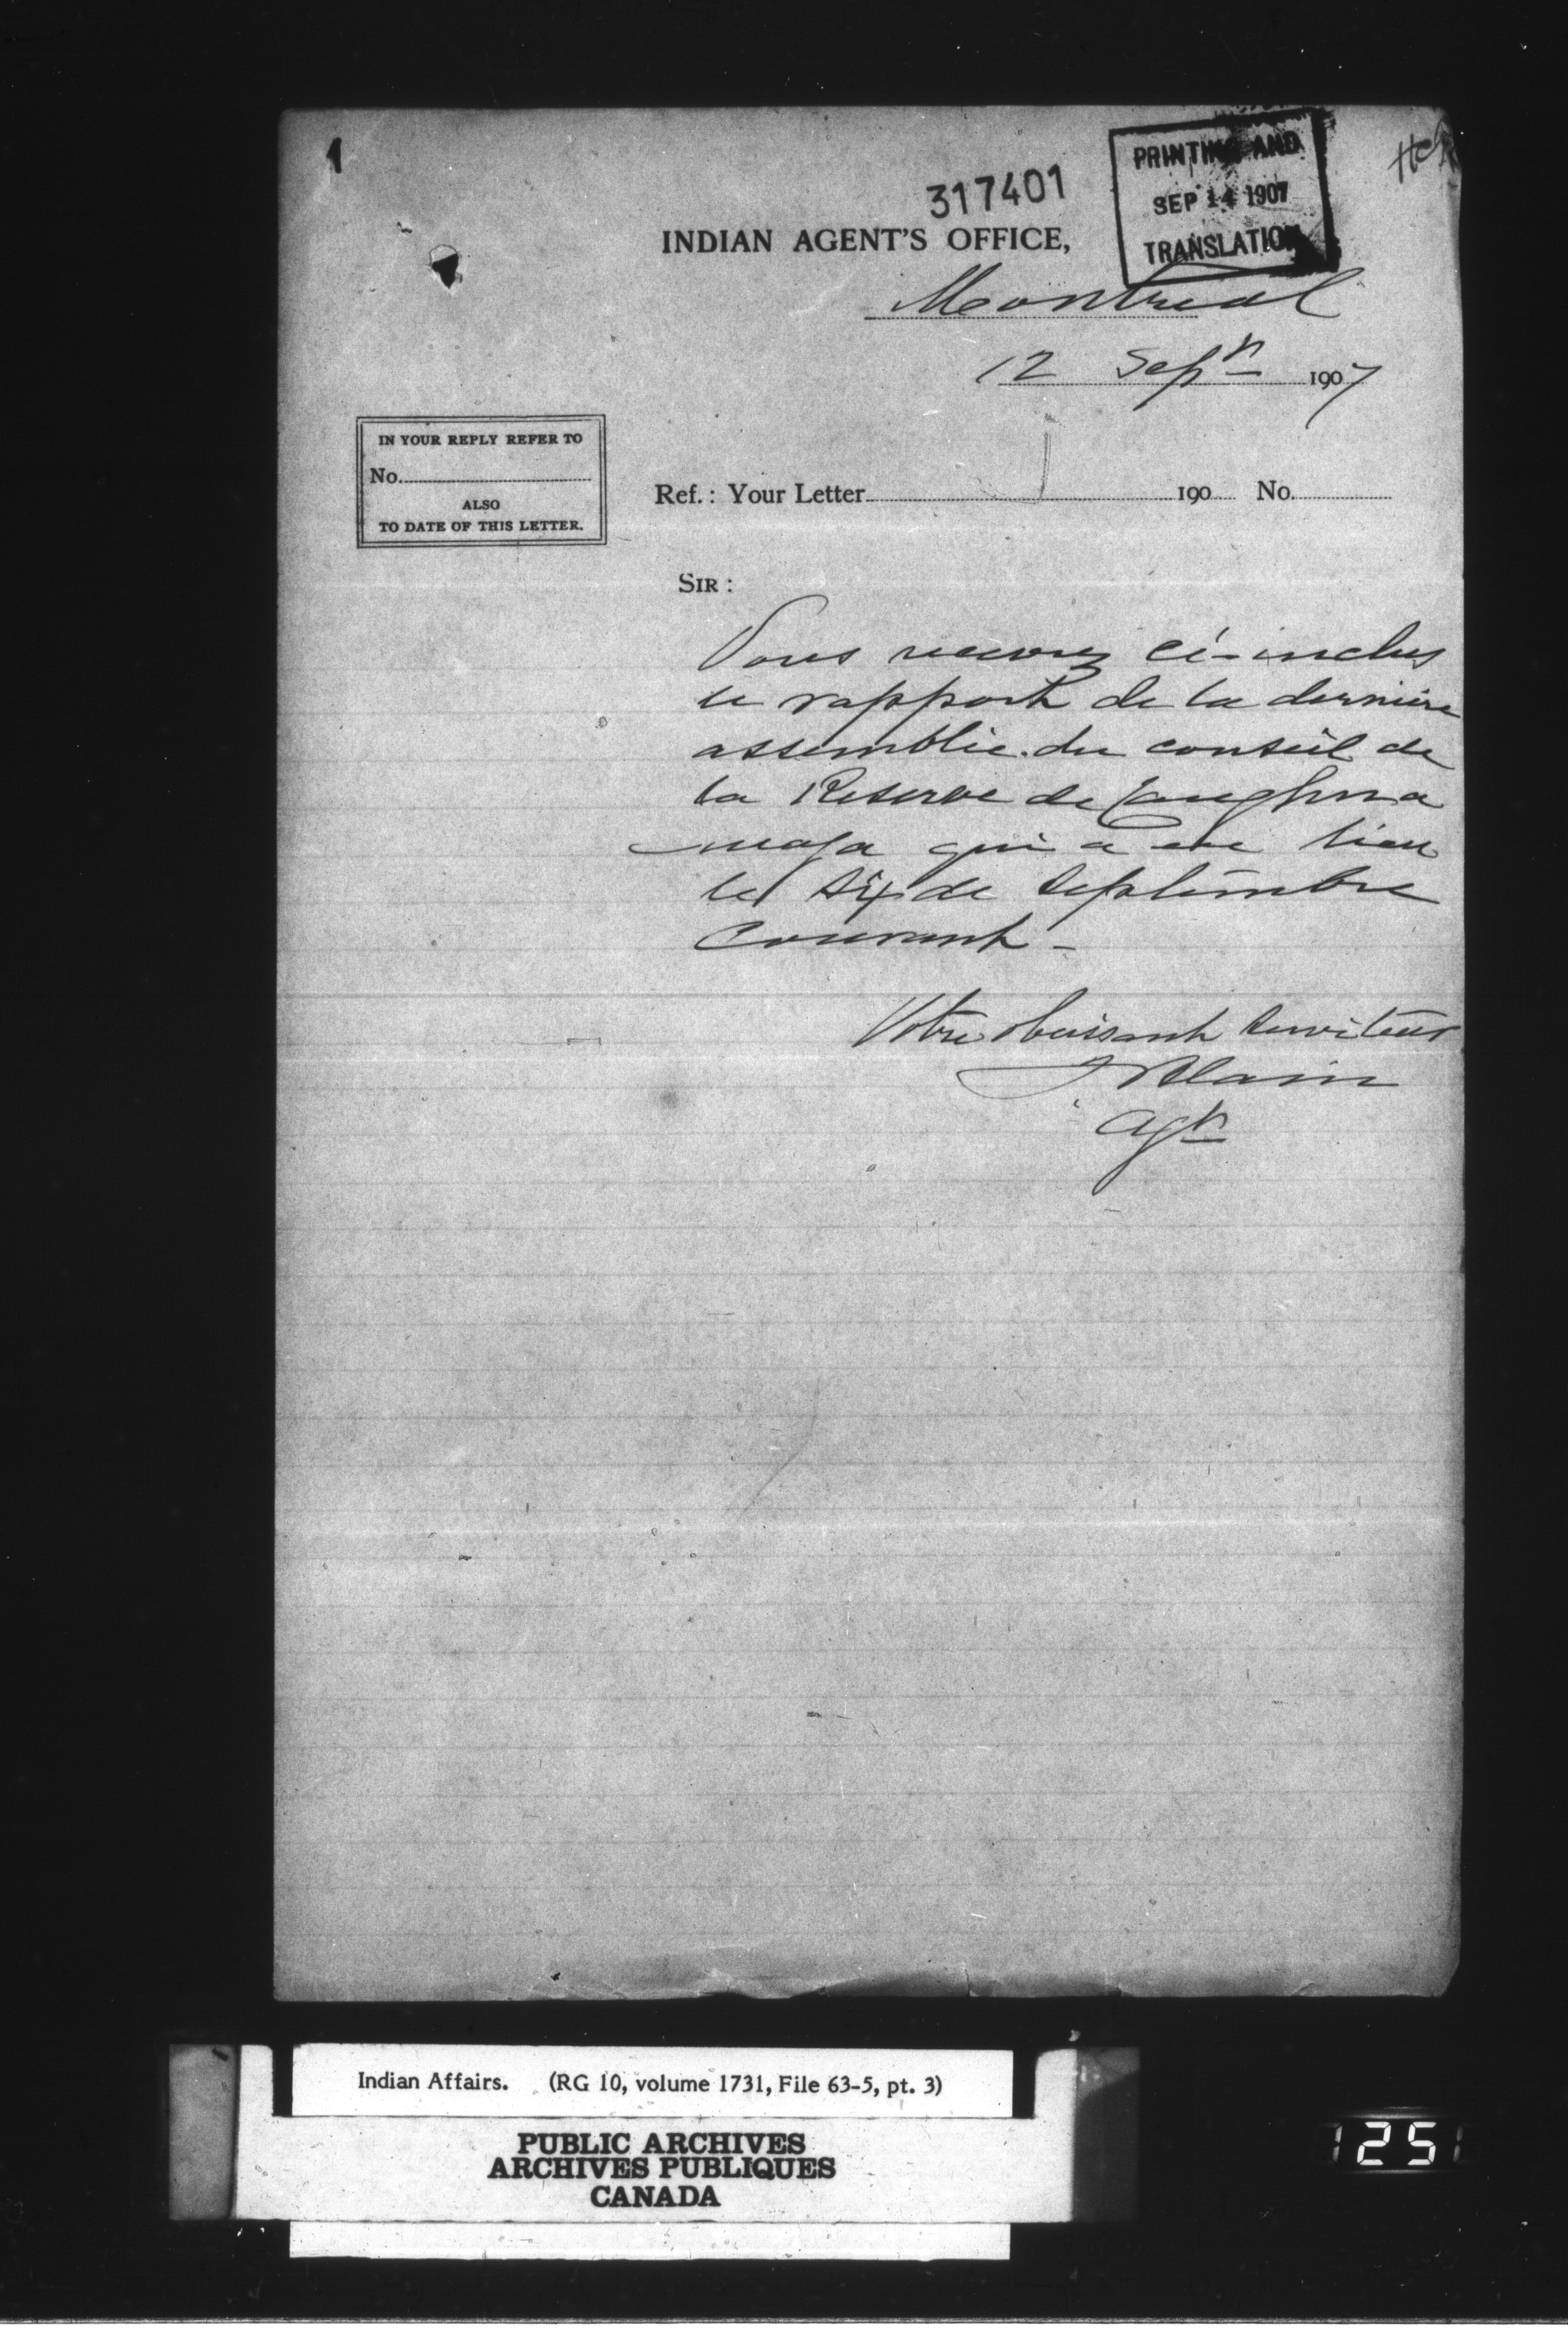 1
317401
PRINTING AND
SEP 14 1907
TRANSLATION
INDIAN AGENT'S OFFICE,
Montreal
12 Sept 1907
IN YOUR REPLY REFER TO
No.
ALSO
TO DATE OF THIS LETTER.
Ref.: Your Letter 190 No.
SIR:
Vous recevrez ci-inclus
le rapport de la dernière
assemblée du conseil de
la Reserve de Caughna
waga qui a eu lieu
le six de Septembre
Courant -
Votre obeissant serviteur
J Blain
Agt
Indian Affairs. (RG 10, volume 1731, File 63-5, pt. 3)
PUBLIC ARCHIVES
ARCHIVES PUBLIQUES
CANADA
1251